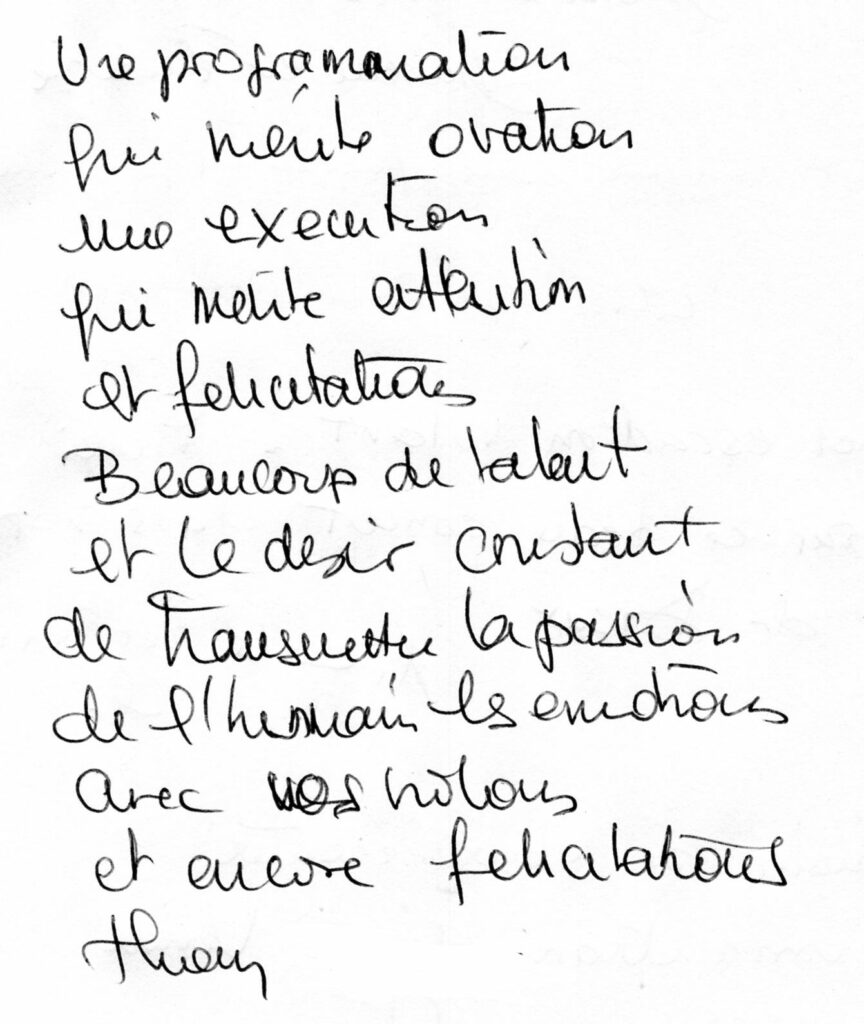 Une programmation
qui mérite ovation
une execution
qui mérite attention
et felicitations
Beaucoup de talent
et le desir constant
de transmettre la passion
de l'humain les emotions
avec vos violons
et encore felicitations